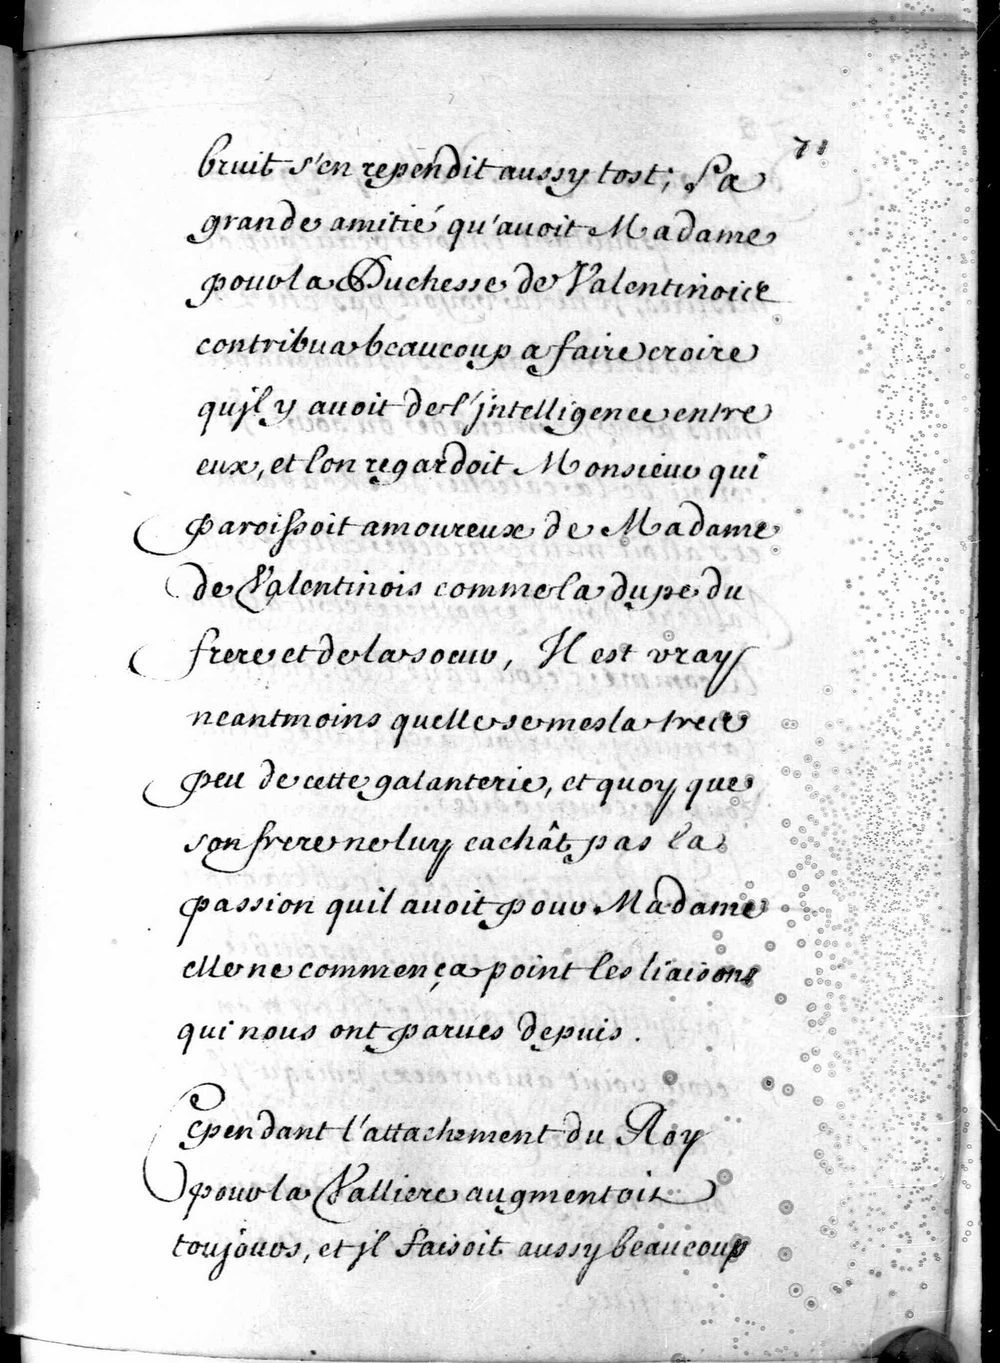 71
bruit s'en rependit aussy tost; La
grande amitié qu'avoit Madame
pour la Duchesse de Valentinois
contribua beaucoup a faire croire
qujl y avoit de l'jntelligence entre
eux, et lon regardoit Monsieur qui
paroissoit amoureux de Madame
de Valentinois comme la dupe du
frere et de la soeur, Il est vray
neantmoins quelle se mesla tres
peu de cette galanterie, et quoy que
son frere ne luy cachât pas la
passion quil avoit pour Madame
elle ne commença point les liaisons
qui nous ont parues depuis.
Cependant l'attachement du Roy
pour la Valliere augmentoit
toujours, et jl faisoit aussy beaucoup